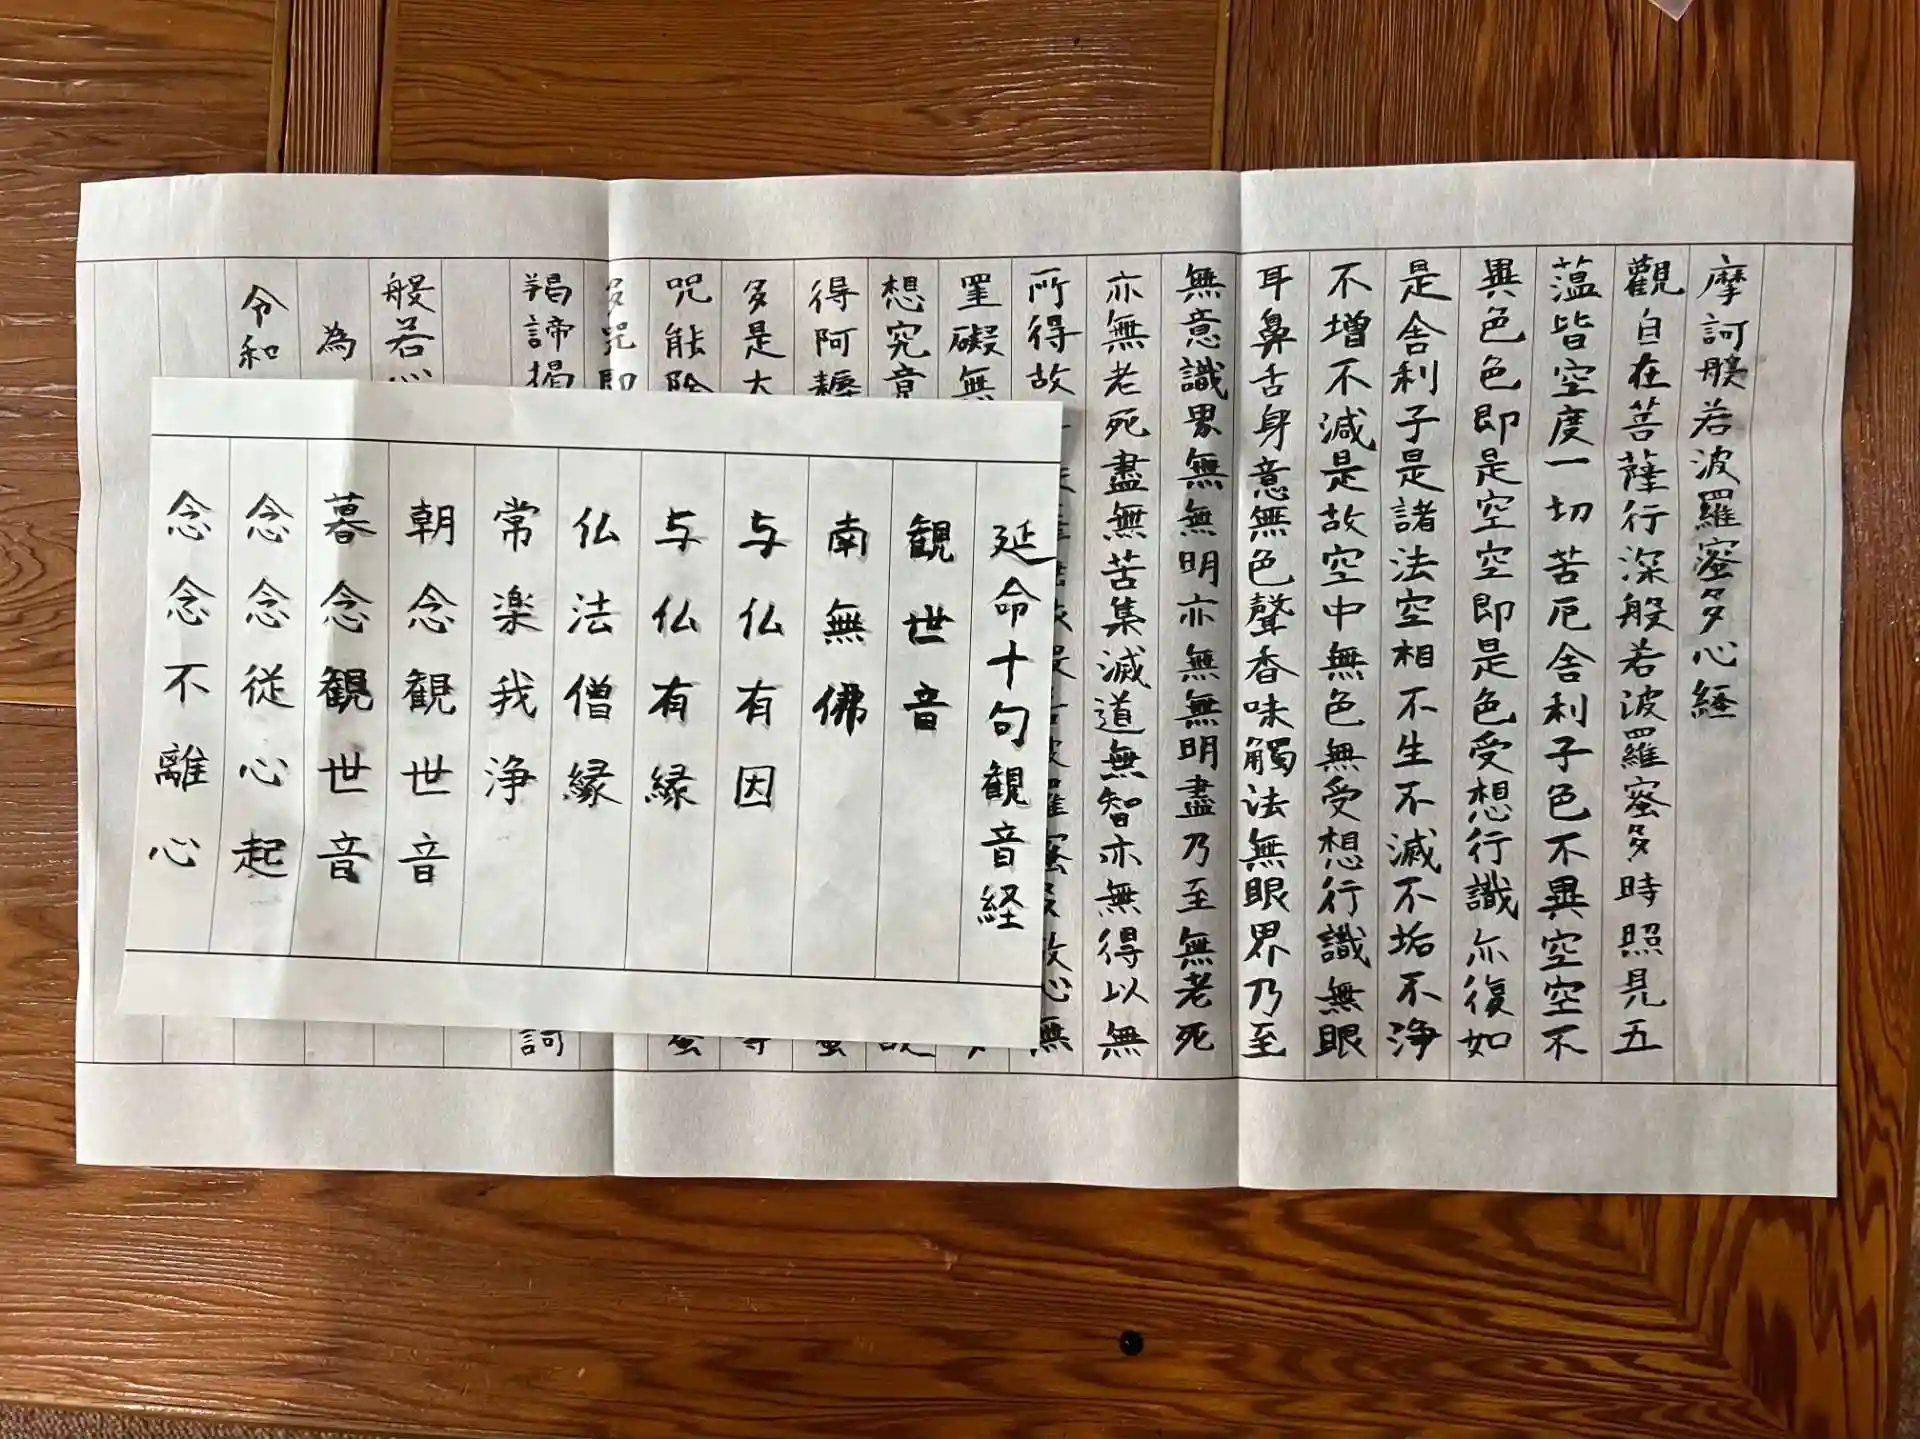 摩訶般若波羅蜜多心経
觀自在菩薩行深般若波羅蜜多時照見五
薀皆空度一切苦厄舍利子色不異空空不
異色色即是空空即是色受想行識亦復如
是舍利子是諸法空相不生不滅不垢不浄
不増不減是故空中無色無受想行識無眼
耳鼻舌身意無色聲香味觸法無眼界乃至
無意識界無無明亦無無明盡乃至無老死
亦無老死盡無苦集滅道無智亦無得以無
所得故 心無
罣礙無
想究竟
得阿耨
多是大
呪能除
多呪即
羯諦揭 訶
般若心
為
令和
延命十句観音経
観世音
南無佛
与仏有因
与仏有縁
仏法僧縁
常楽我浄
朝念観世音
暮念観世音
念念従心起
念念不離心